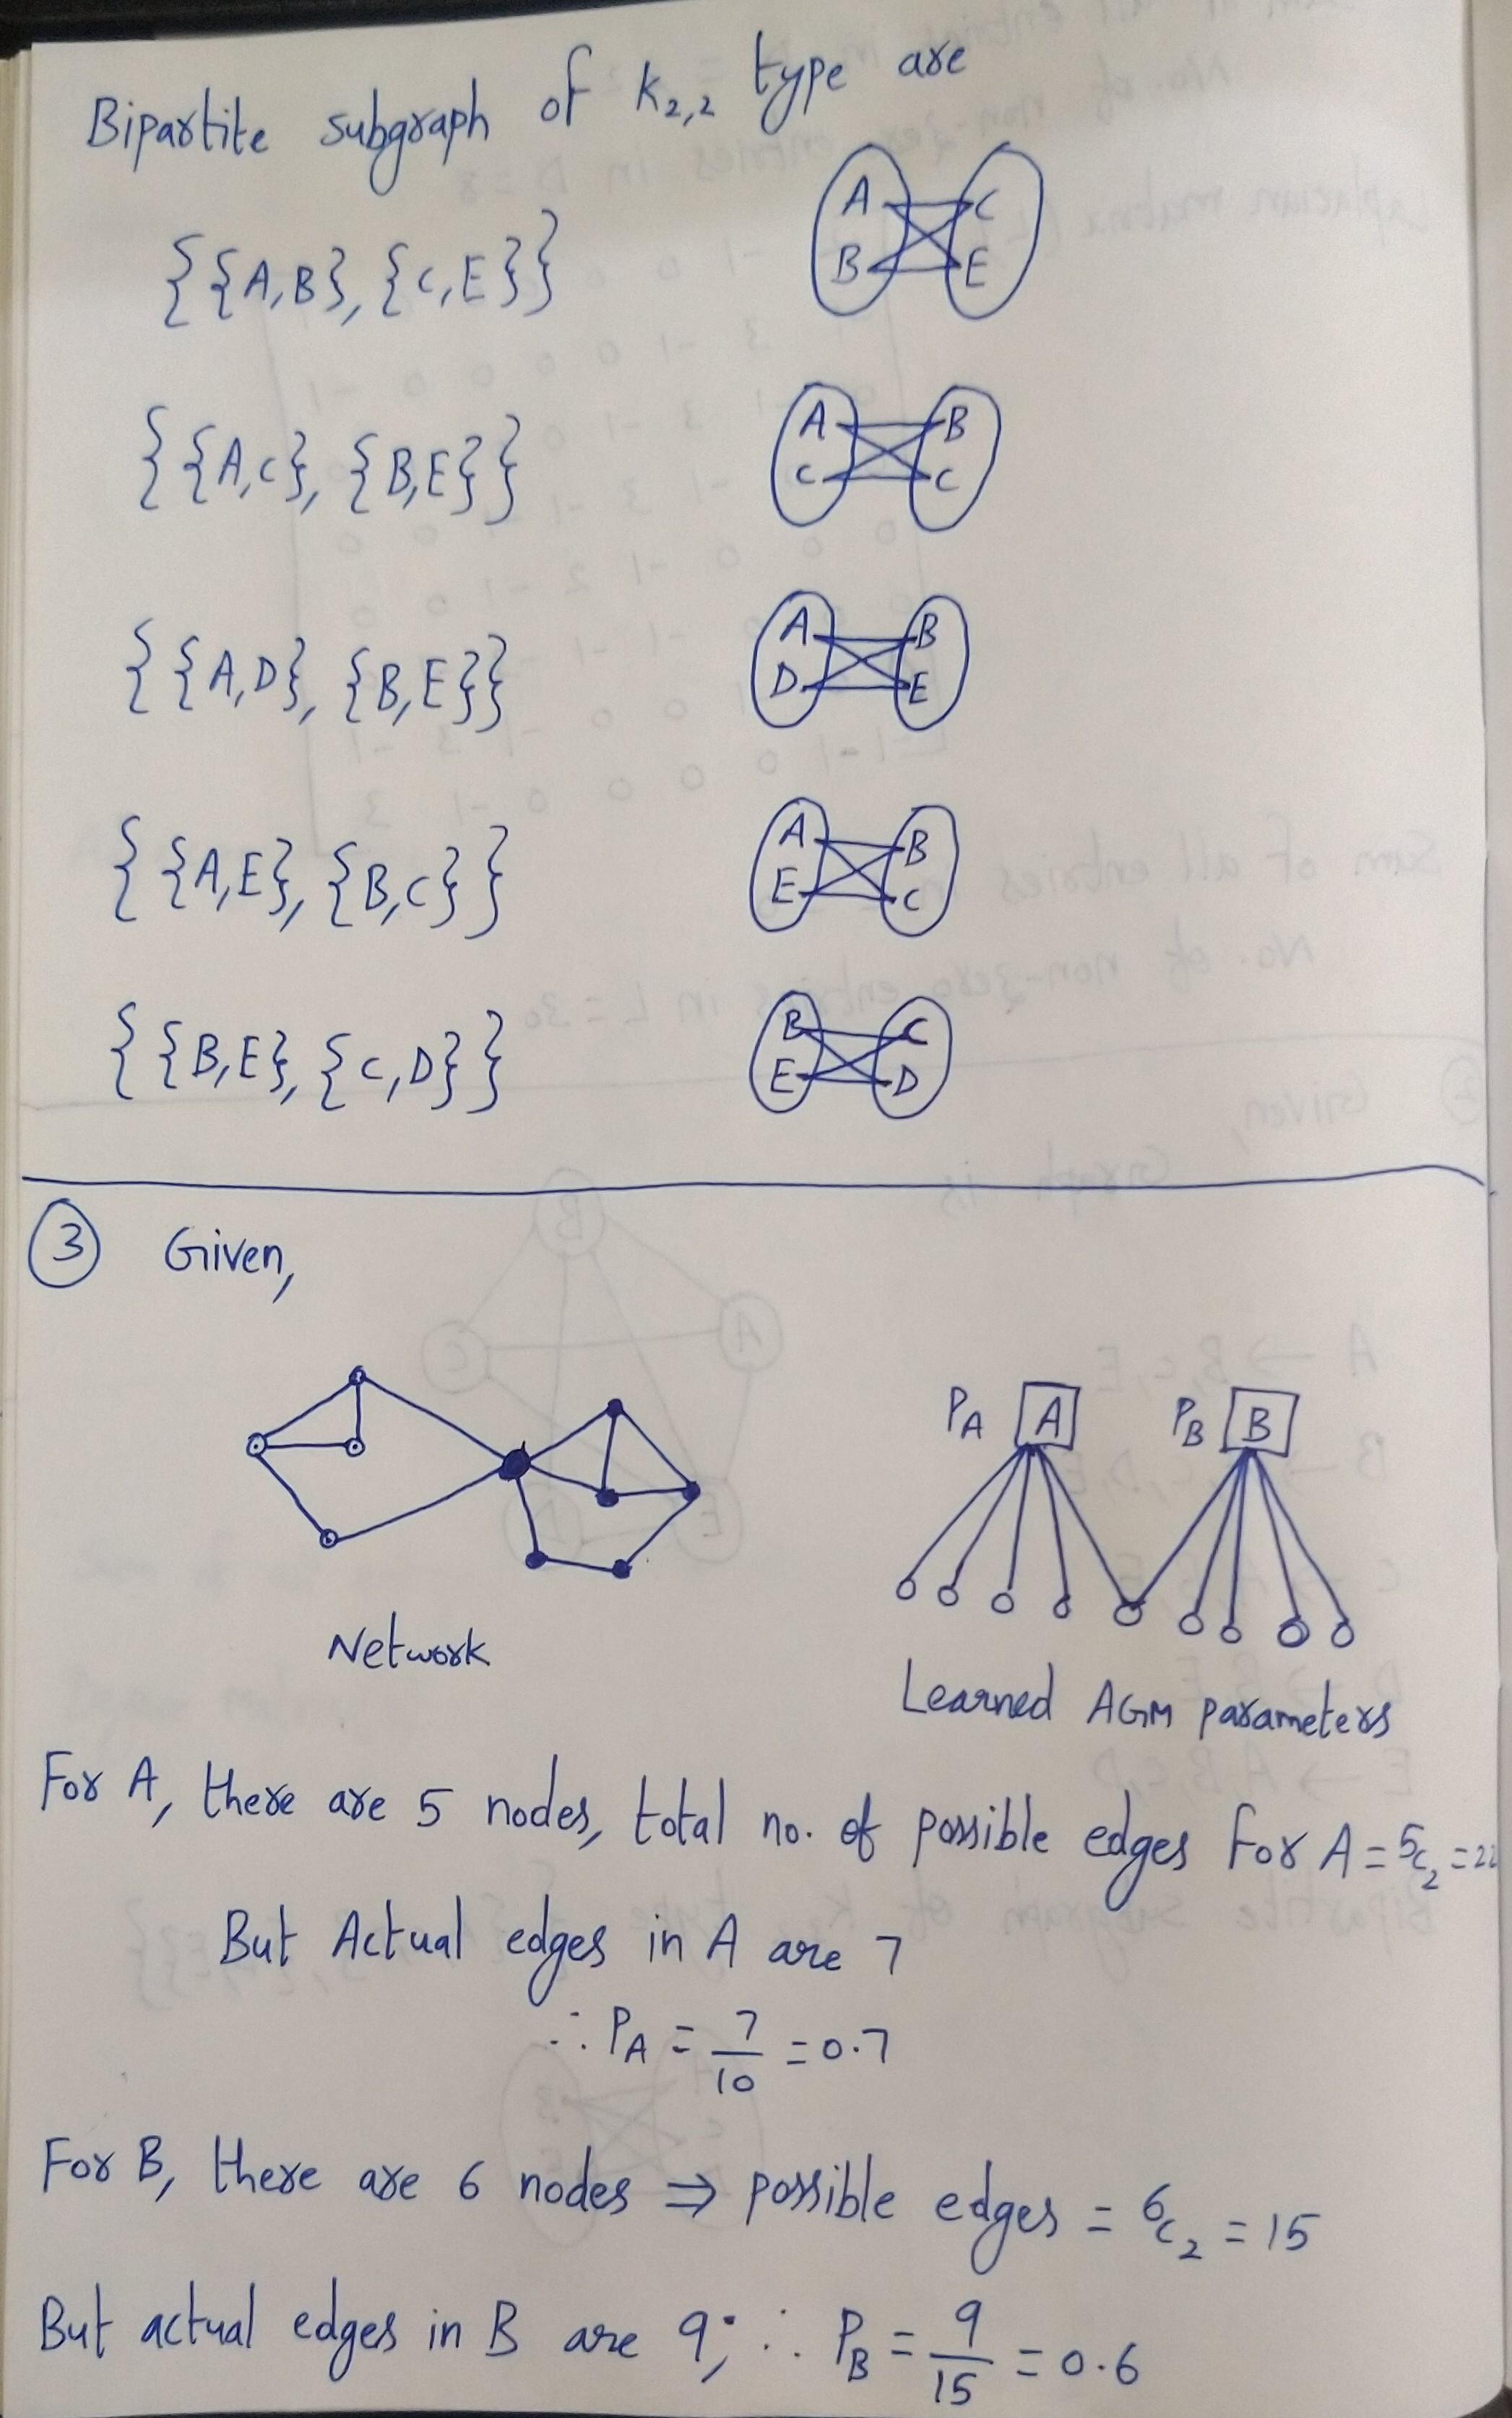 Bipartite subgraph of K2,2 type are
{{A,B}, {C,E}}
A C
B E
{{A,C}, {B,E}}
A B
C C
{{A,D}, {B,E}}
A B
D E
{{A,E}, {B,C}}
A B
E C
{{B,E}, {C,D}}
B C
E D
3 Given,
PA A PB B
Network
Learned AGM parameters
For A, there are 5 nodes, total no. of possible edges for A = 5c2 =
But Actual edges in A are 7
∴ PA = 7/10 = 0.7
For B, there are 6 nodes ⇒ possible edges = 6c2 = 15
But actual edges in B are 9; ∴ PB = 9/15 = 0.6